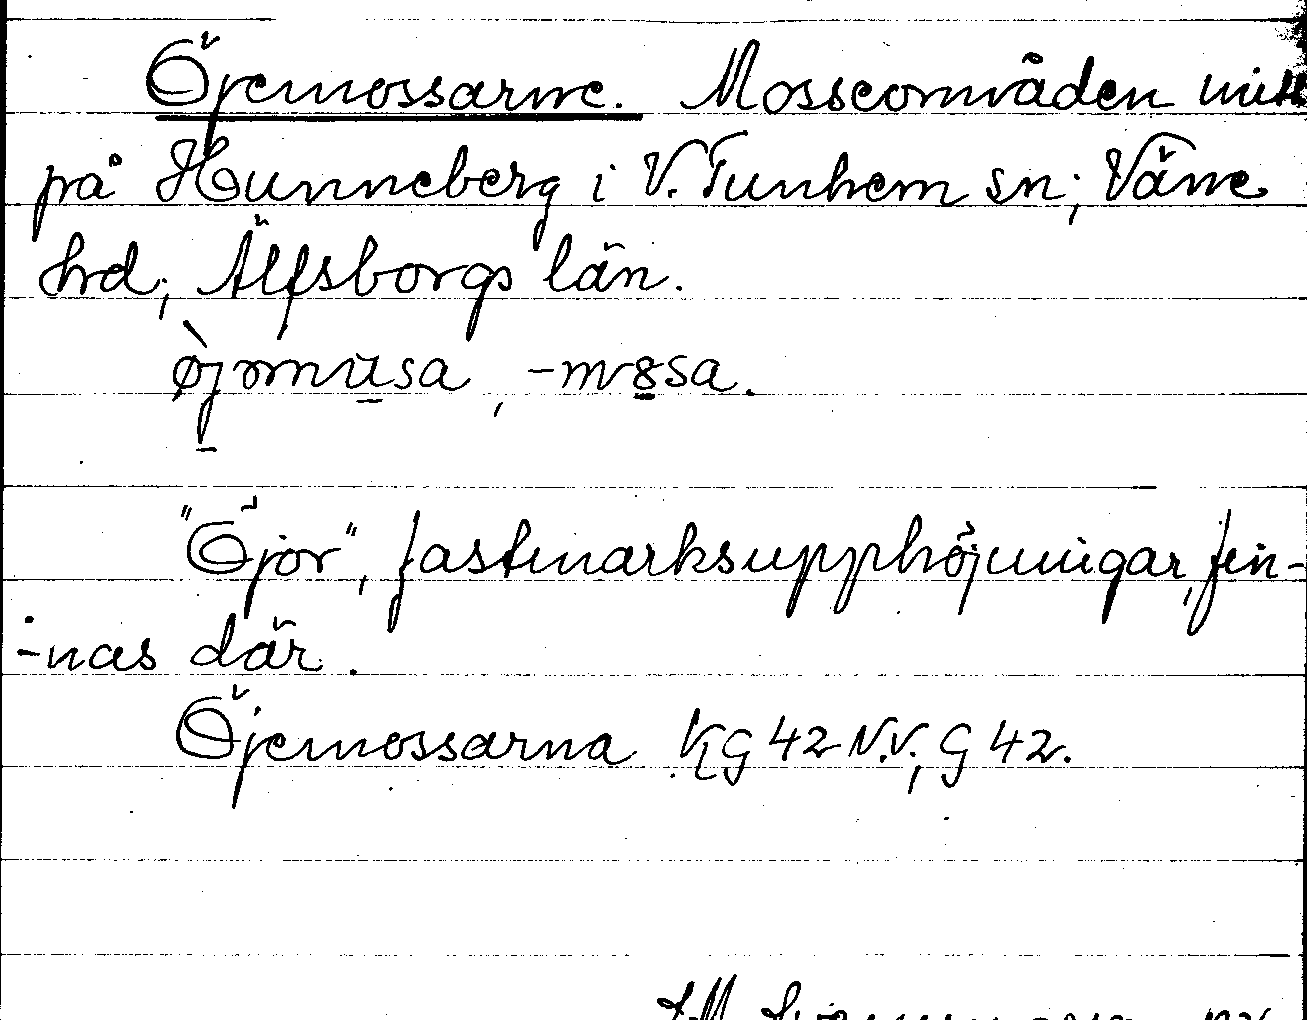 Öjemossarne. Mosseområden mitt
på Hunneberg i V. Tunhem sn; Väne
hrd; Älfsborgs län.
"Öjor", fastmarksupphöjningar, fin-
-nas där.
Öjemossarna KG 42 N.V; G 42.